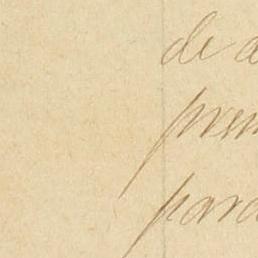 de a
prem
para